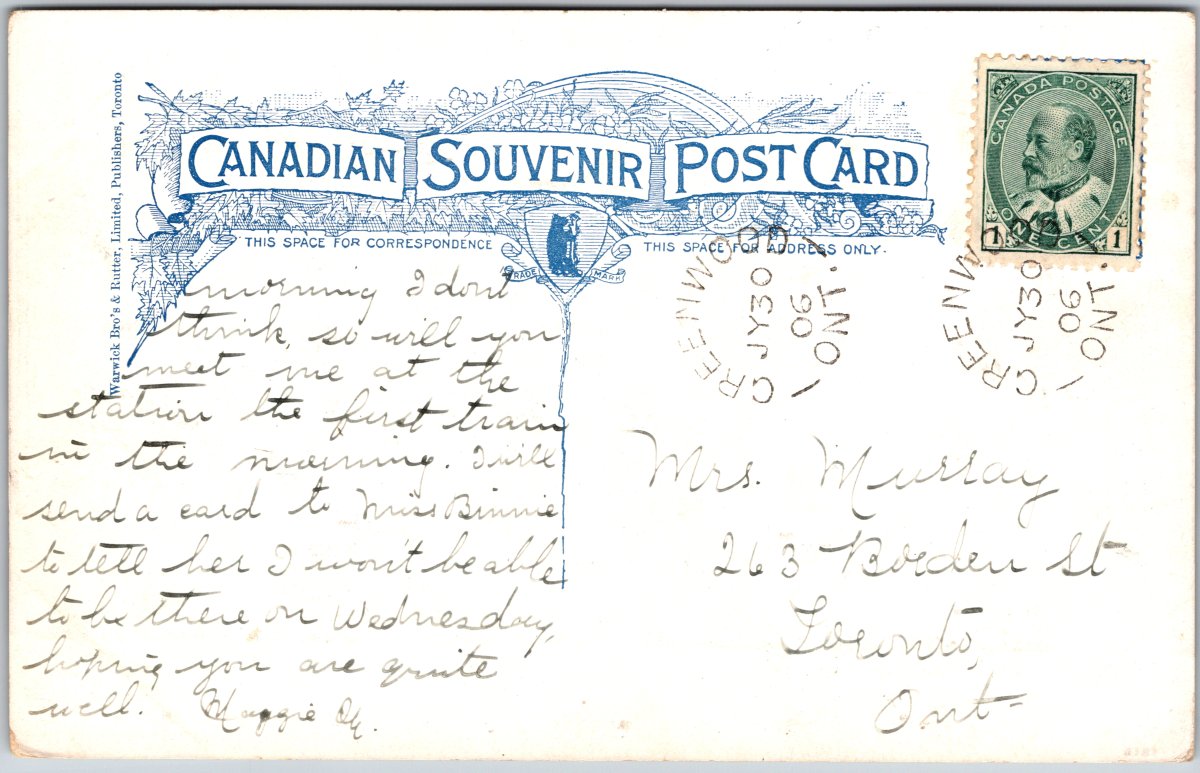 Warwick Bro's & Rutter, Limited, Publishers, Toronto
CANADIAN SOUVENIR POST CARD
THIS SPACE FOR CORRESPONDENCE
THIS SPACE FOR ADDRESS ONLY.
TRADE MARK
CANADA POSTAGE
ONE CENT
1 1
GREENWOOD
JY 30
06
ONT.
GREENWOOD
JY 30
06
ONT.
morning I dont
think, so will you
meet me at the
station the first train
in the morning. I will
send a card to Miss Binnie
to tell her I won't be able
to be there on Wednesday,
hoping you are quite
well. Maggie
Mrs. Murray
263 Borden St
Toronto,
Ont